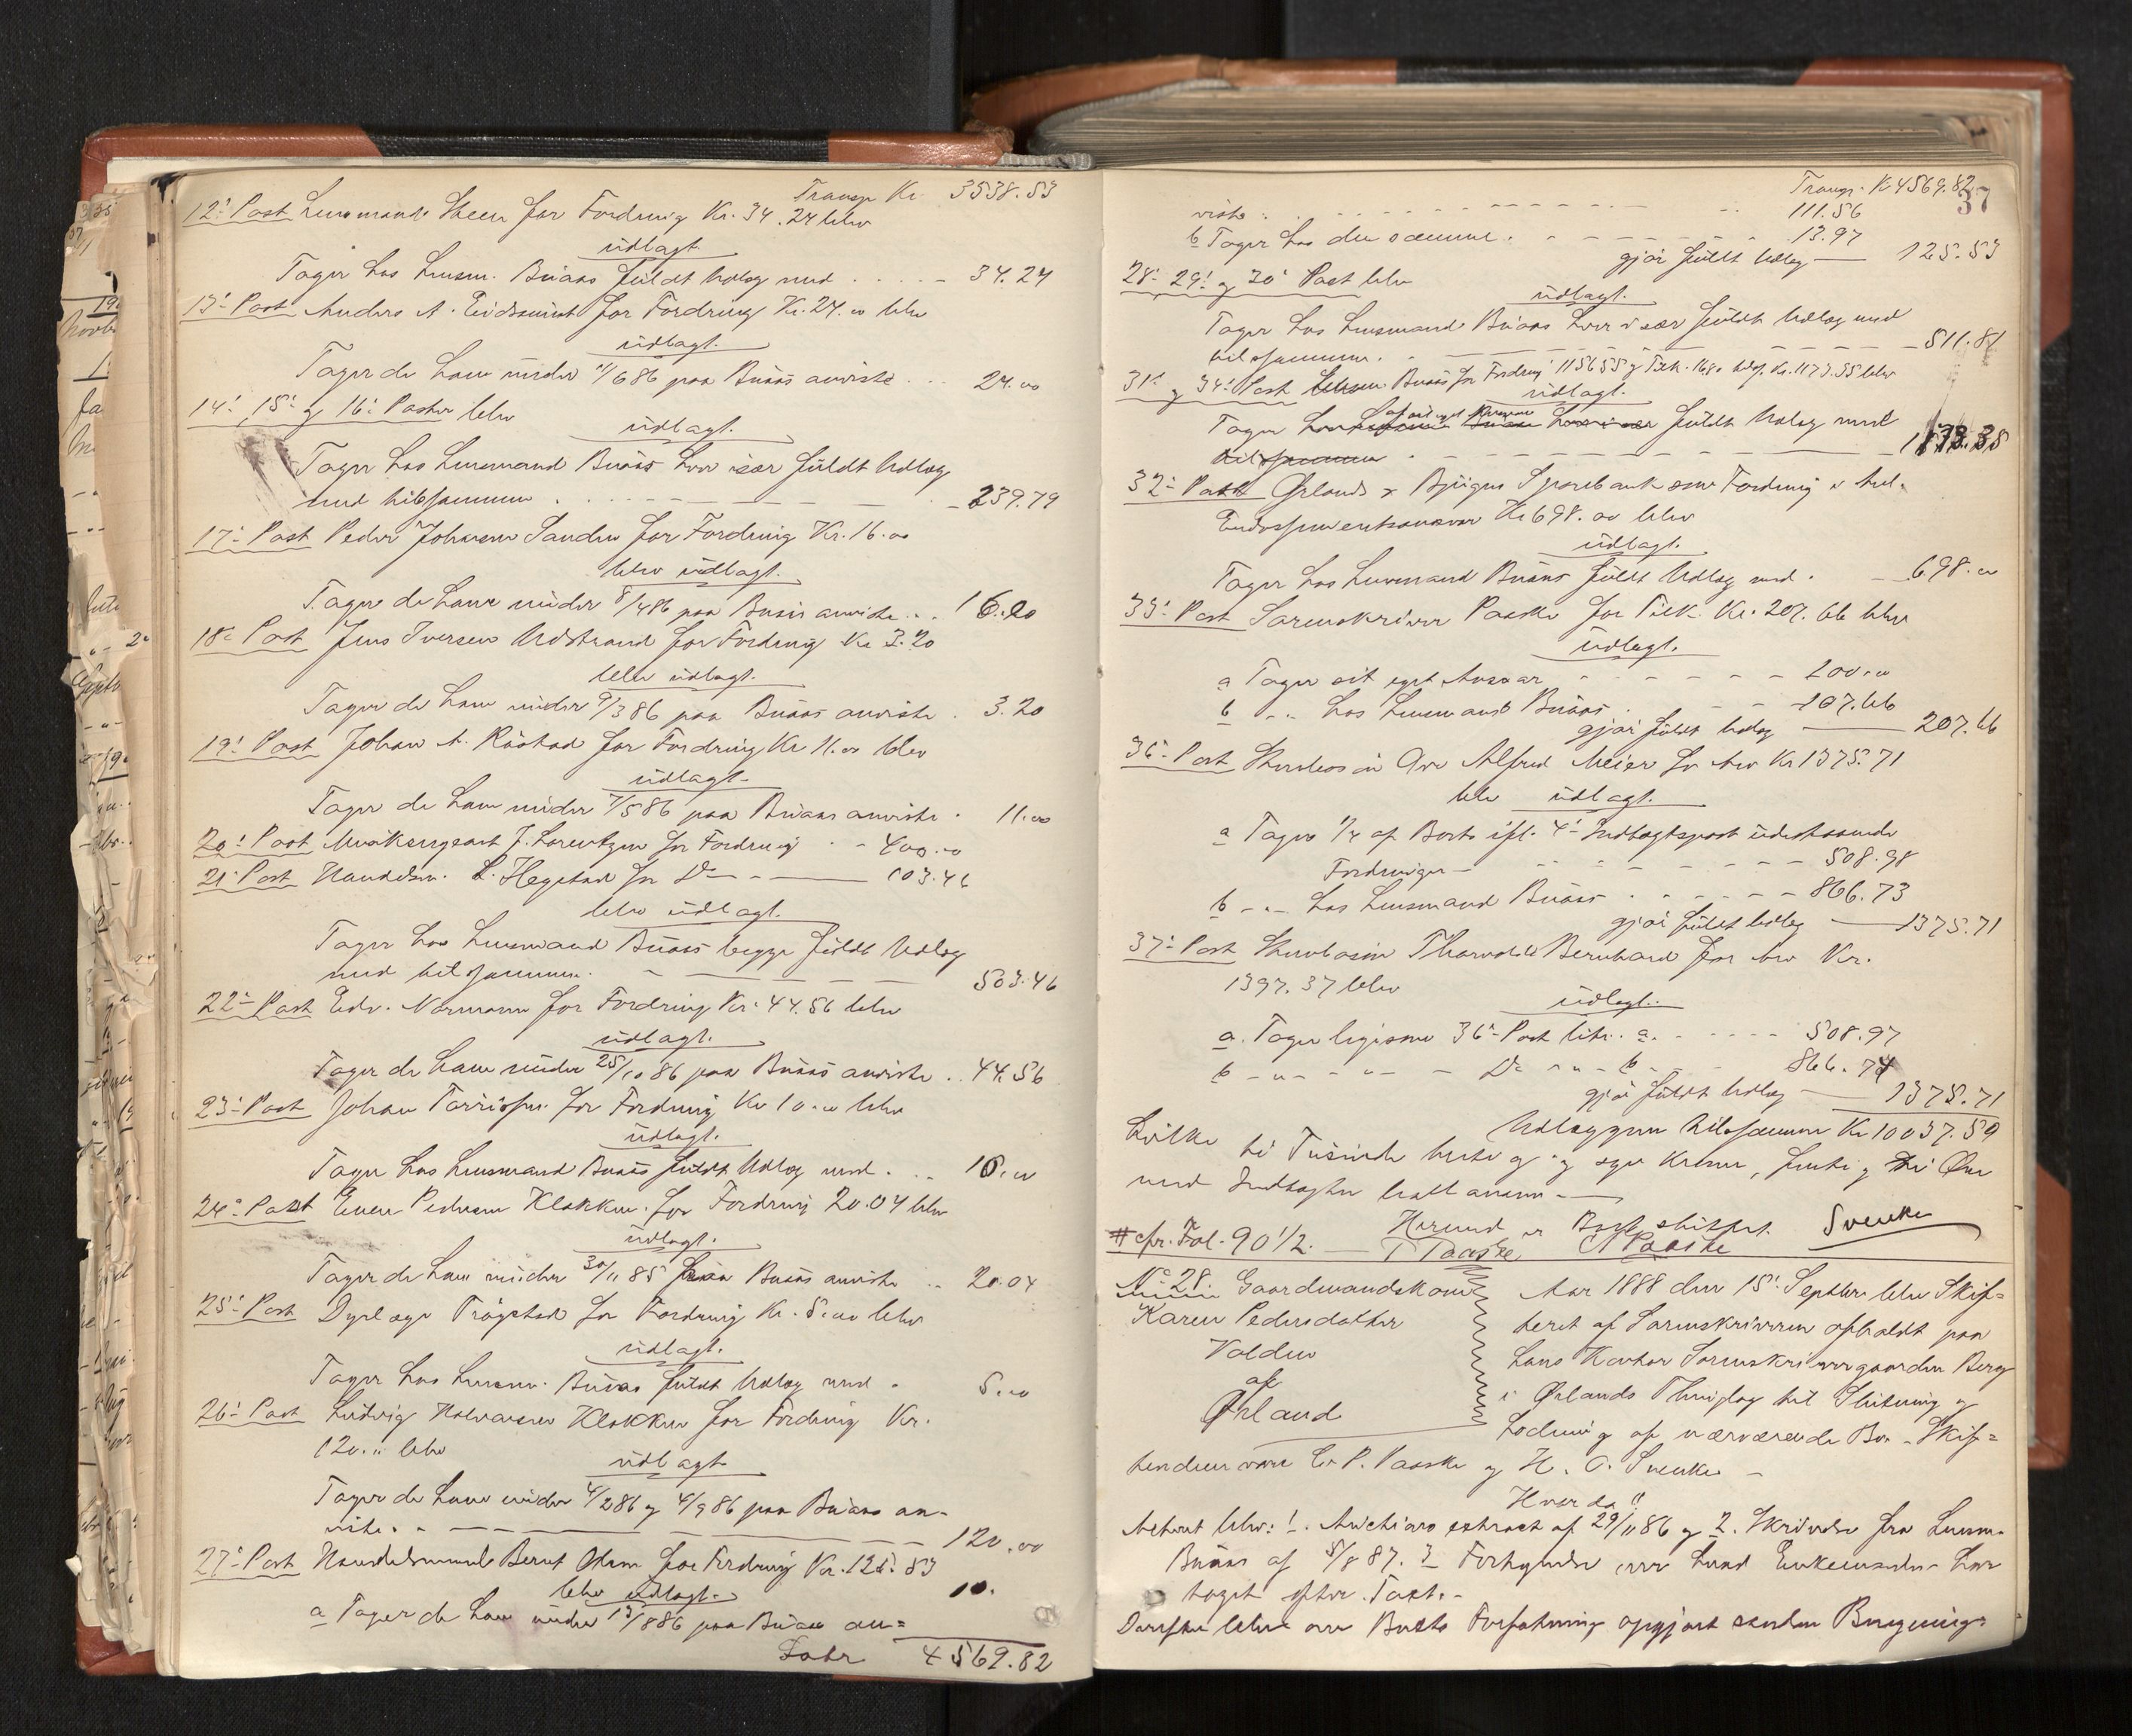 Transp Kr. 3538.53
12te Post Lensmand Steen for Fordring Kr. 34.24 blev
udlagt.
Tager hos Lensm. Buaas fuldt Udlæg med 34.24
13de Post Anders A. Eidsmint for Fordring Kr. 24.00 blev
udlagt.
Tager de ham under 4/6 86 paa Buaas anviste 24.00
14de, 15de og 16de Poster blev
udlagt.
Tager hos Lensmand Buaas hver især fuldt Udlæg
med tilsammen 239.79
17de Post Peder Johnsen Sanden for Fordring Kr. 16.00
blev udlagt.
Tager de ham under 8/4 86 paa Buaas anviste 16.00
18de Post Jens Iversen Udstrand for Fordring Kr 3.20
blev udlagt.
Tager de ham under 9/3 86 paa Buaas anviste 3.20
19de Post Johan A. Røstad for Fordring Kr 11.00 blev
udlagt.
Tager de ham under 7/5 86 paa Buaas anviste 11.00
20de Post Musiksergeant J. Lorentzen for Fordring 400.00
21de Post Handelsm. L. Hegstad for Do 103.46
blev udlagt.
Tager hos Lensmand Buaas begge fuldt Udlæg
med tilsammen. 503.46
22de Post Edv. Normann for Fordring Kr. 44.56 blev
udlagt.
Tager de ham under 25/10 86 paa Buaas anviste 44.56
23de Post Johan Tørrissen for Fordring Kr 10.00 blev
udlagt.
Tager hos Lensmand Buaas fuldt Udlæg med 10.00
24de Post Even Pedersen Klakken for Fordring 20.04 blev
udlagt.
Tager de ham under 30/11 85 paa Buaas anviste 20.04
25de Post Dyrlæge Trøgstad for Fordring Kr. 5.00 blev
udlagt.
Tager hos Lensm. Buaas fuldt Udlæg med 5.00
26de Post Ludvig Halvorsen Klakken for Fordring Kr.
120.00 blev
udlagt
Tager de ham under 4/2 86 og 4/9 86 paa Buaas an-
viste. 120.00
27de Post Handelsmand Bernt Olsen for Fordring Kr. 125.53
blev udlagt. 10.
a Tager de ham under 13/8 86 paa Buaas an=
Later 4569.82
Transp. Kr 4569.82
37
viste 111.56
b Tager hos den samme 13.97
gjør fuldt Udlæg 125.53
28de 29de og 30te Post blev
udlagt.
Tager hos Lensmand Buaas hver især fuldt Udlæg med
tilsammen. 511.81
31te og 34de Post Lensm. Buaas for Fordring 1156.55 og Tilk. 16.80 tils. Kr. 1173.35 blev
udlagt.
Tager af sit eget Ansvar fuldt Udlæg med
1173.35
32te Post Ørlands & Bjugns Sparebank som Fordring i Anl.
Endossementsansvar Kr 698.00 blev
udlagt.
Tager hos Lensmand Buaas fuldt Udlæg med 698.00
35te Post Sorenskriver Paaske for Tilk. Kr. 207.66 blev
udlagt.
a Tager sit eget Ansvar 100.00
b " " hos Lensmand Buaas 107.66
gjør fuldt Udlæg 207.66
36te Post Alfred Meier for Arv Kr 1375.71
blev udlagt.
a Tager 1/4 af Boets ifl. 4de Indtægtspost udestaaende
Fordringer 508.98
b " " hos Lensmand Buaas 866.73
gjør fuldt Udlæg 1375.71
37te Post Thorvald Bernhard for Arv Kr.
1397.37 blev
udlagt.
a. Tager ligesom 36te Post litr. a. 508.97
b " " " Do " " b 866.74
gjør fuldt Udlæg 1375.71
Udlæggene tilsammen Kr 10037.59
Hvilke ti Tusinde treti og syv Kroner, femti og ni Øre
med Indtægten balancerer.
Hermed er Boet sluttet. Svenke
# cfr. Fol. 90 1/2. T Paaske C P Paaske
No 28. Gaardmandskone
Karen Pedersdatter
Valden
af
Ørland
Aar 1888 den 15de Septbr blev Skif=
teret af Sorenskriveren afholdt paa
hans Kontor Sorenskrivergaarden Berg
i Ørlands Thinglag til Slutning og
Lodning af nærværende Bo. Skif=
tevidner vare C. P. Paaske og H. O. Svenke
Hvorda!!
Aetteret blev: 1. Auctions extract af 29/11 86 og 2. Skrivelse fra Lensm.
Buaas af 5/8 87. 3 Forkyndelse over hvad Enkemanden har
taget efter Taxt.
Derefter blev over Boets Forfatning opgjort saadan Beregning: